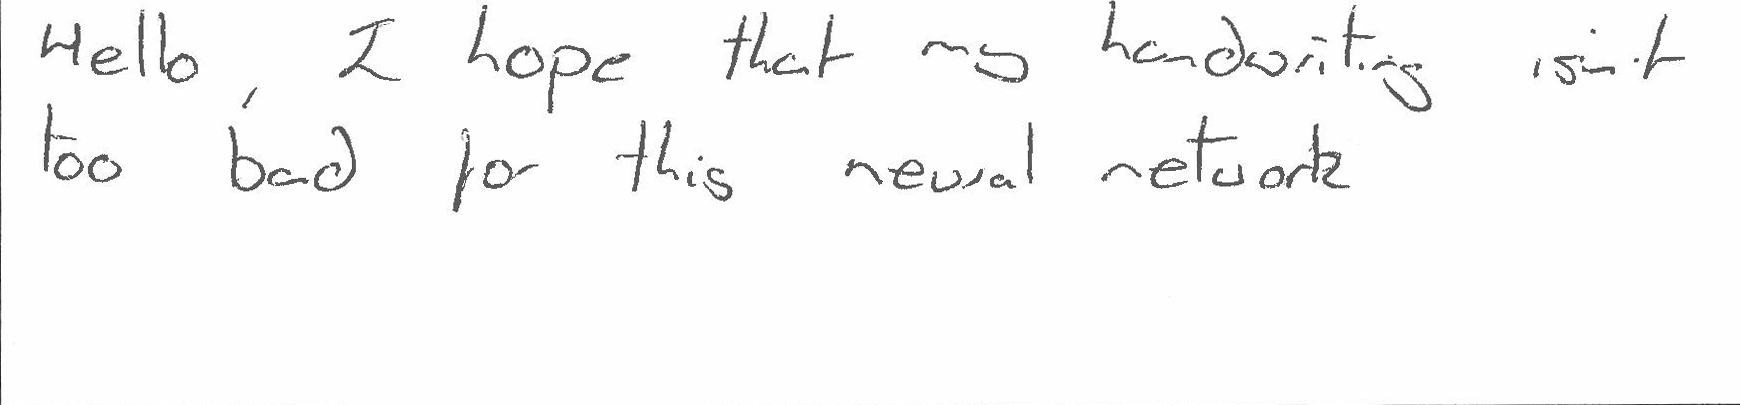 Hello, I hope that my handwriting isn't
too bad for this neural network